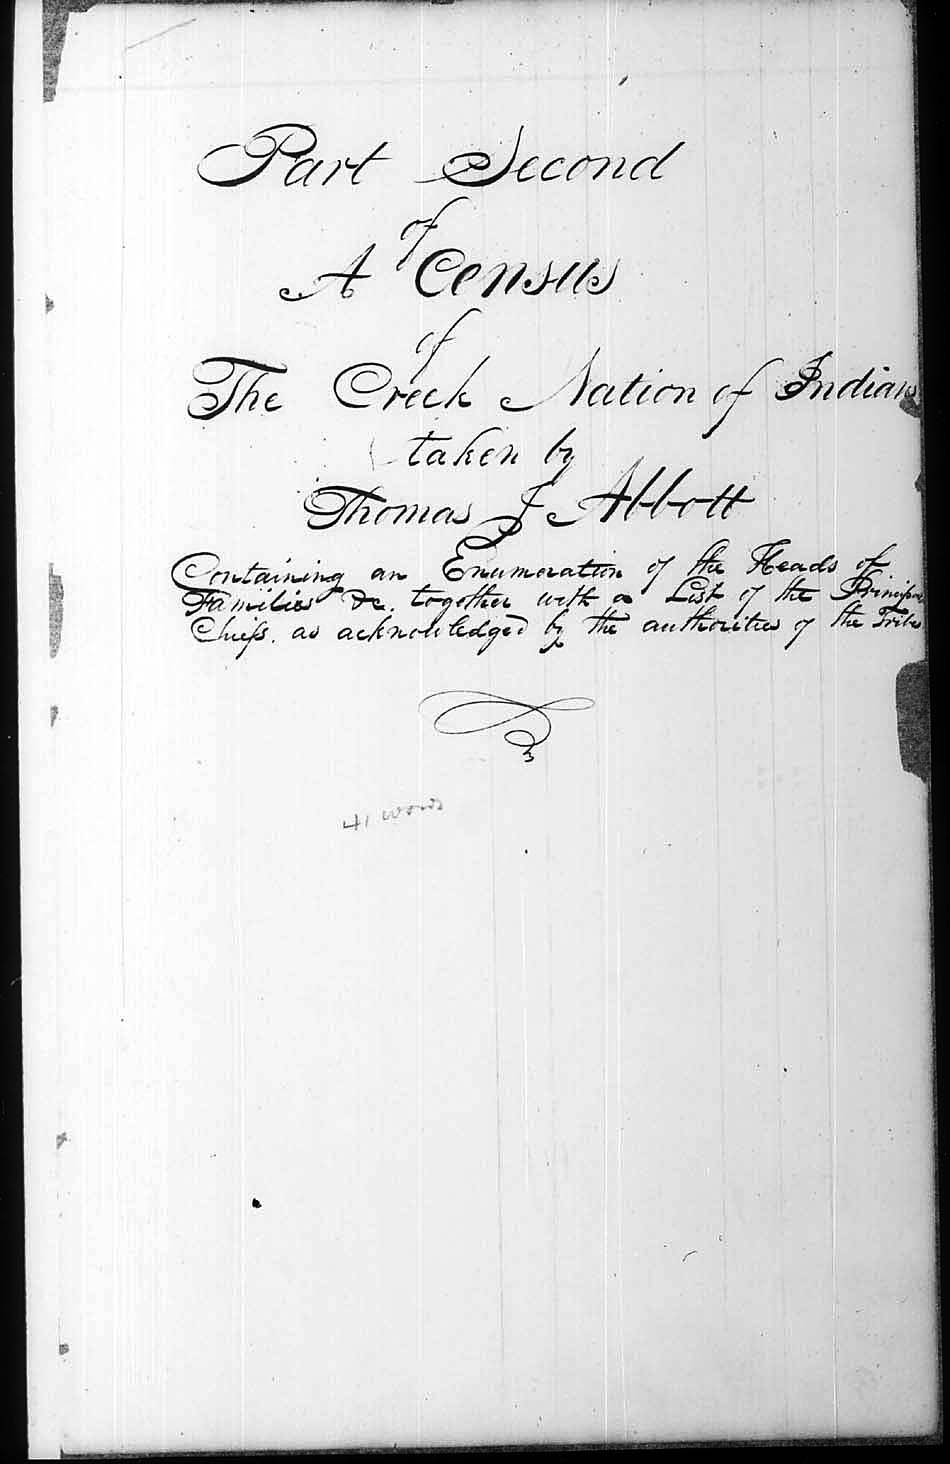 Part Second
of
A Census
of
The Creek Nation of Indians
taken by
Thomas J Abbott
Containing an Enumeration of the Heads of
Families &c. together with a List of the Principal
Chiefs. as acknowledged by the authorities of the Tribe
41 words